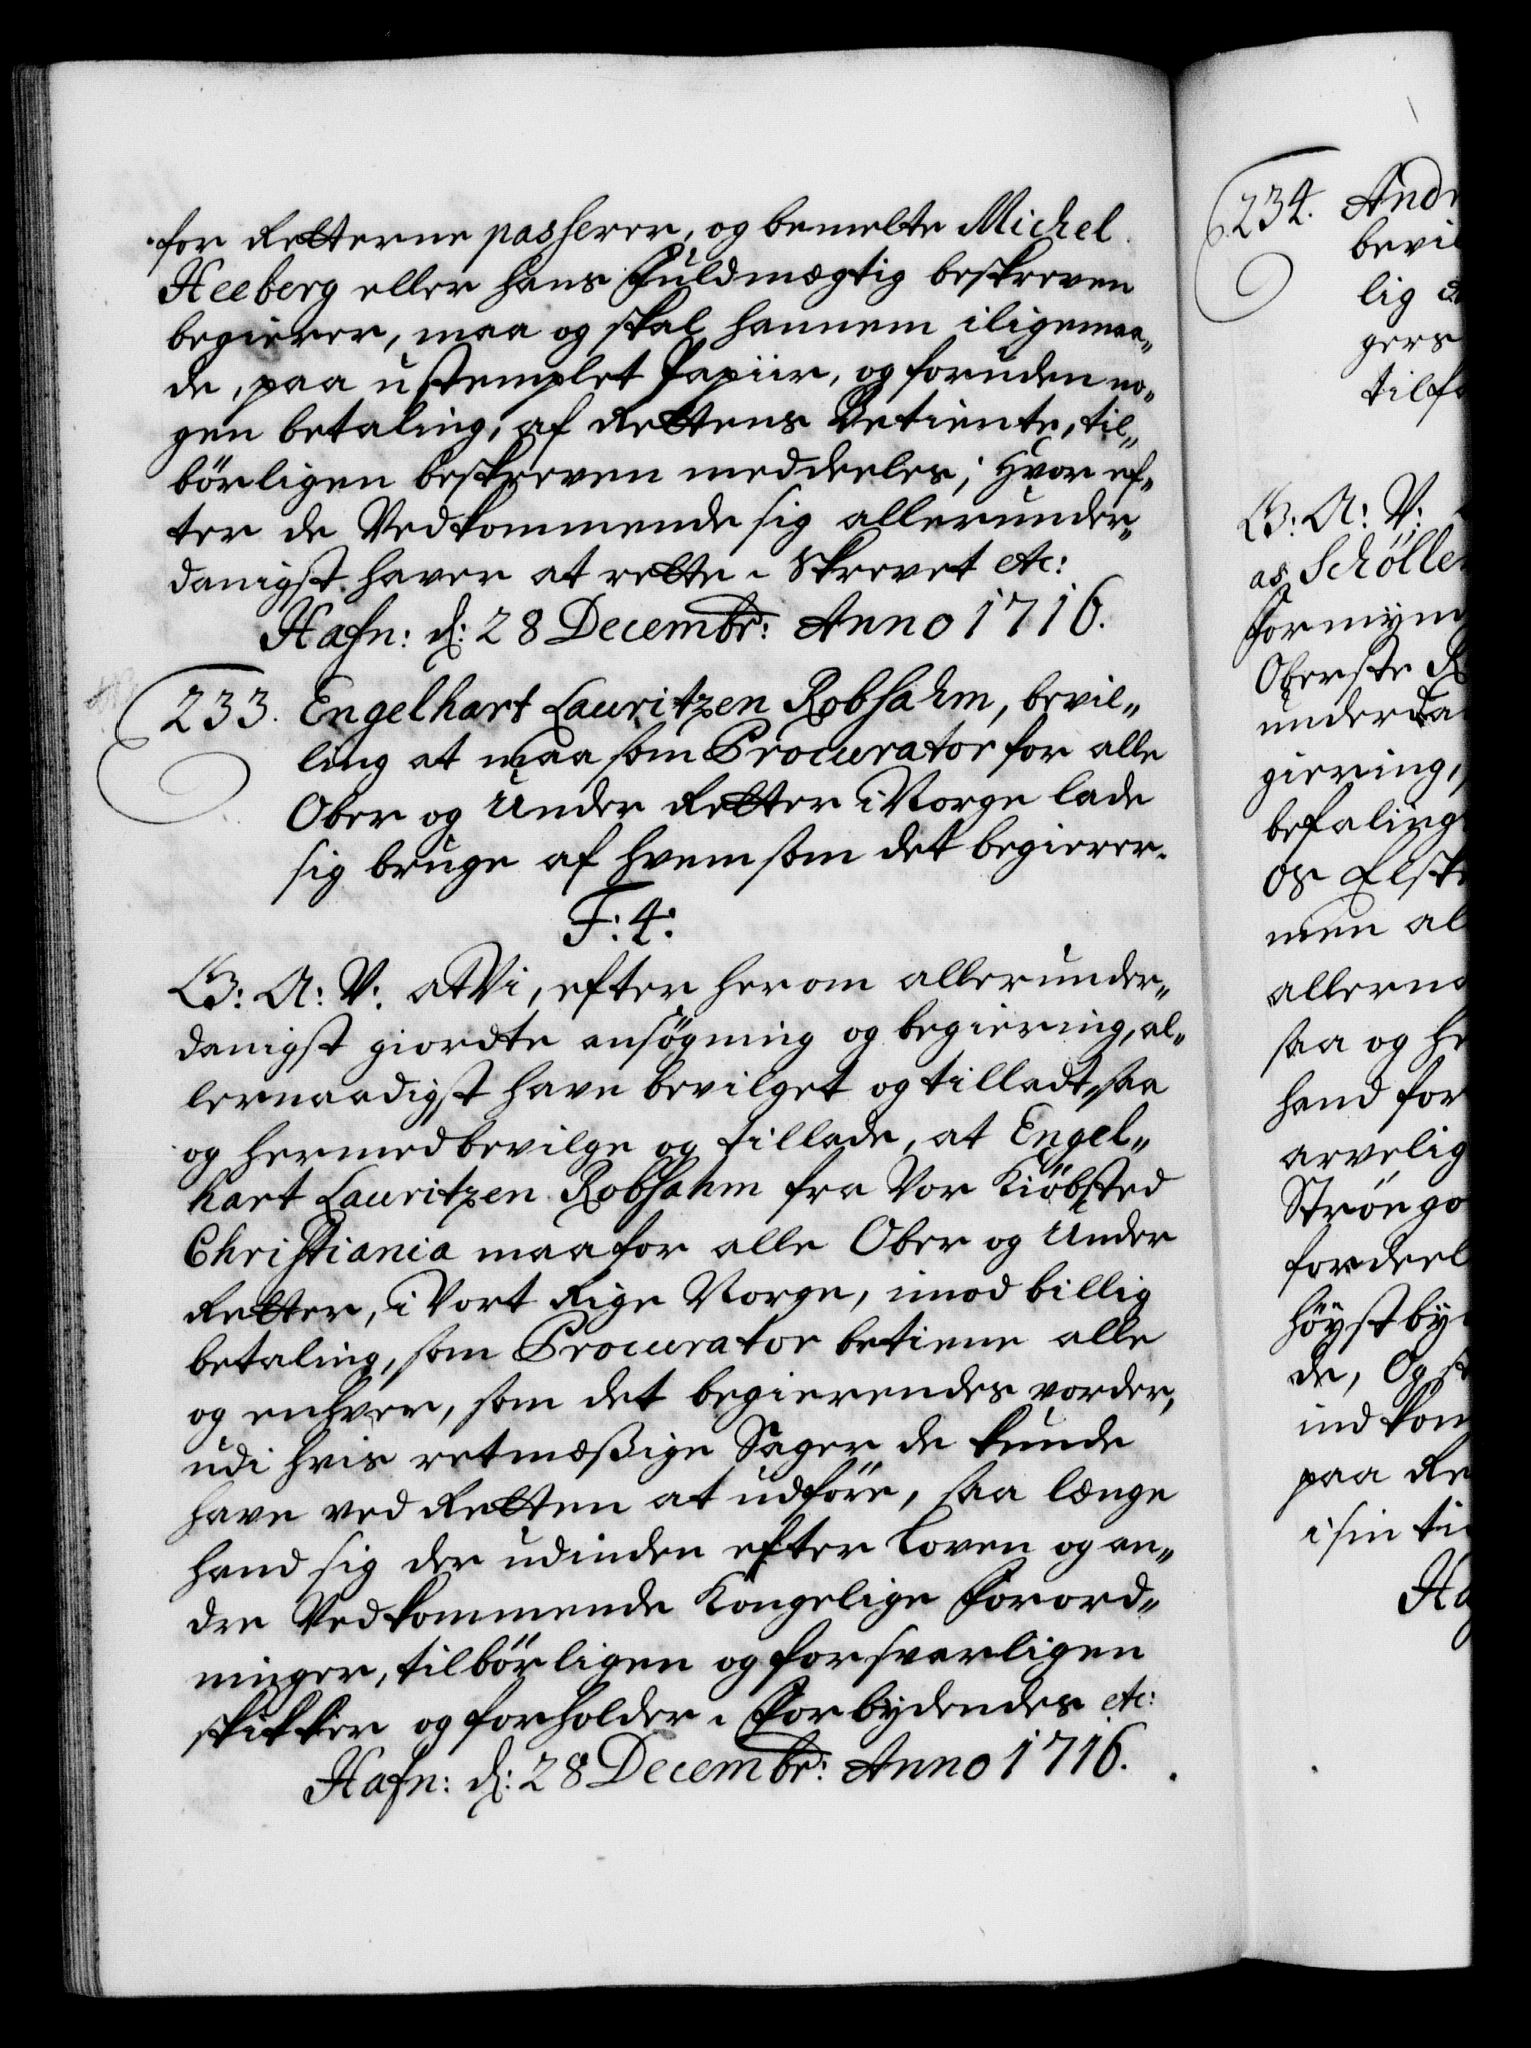 for Retterne passerer, og bemelte Michel
Heeberg eller hans Fuldmægtig beskreven
begierer, maa og skal hannem iligemaa„
de, paa ustemplet Papiir, og foruden no„
gen betaling, af Rettens Betiente, til„
börligen beskreven meddeeles; Hvor ef„
ter de Vedkommende sig allerunder„
danigst haver at rette. Skrevet etc:
Hafn: d: 28 Decembr: Anno 1716.
233. Engelhart Lauritzen Robsahm, bevil„
ling at maa som Procurator for alle
Ober og Under Retter i Norge lade
sig bruge af hvem som det begierer.
F: 4:
G: A: V: at Vi, efter herom allerunder„
danigst giordte ansögning og begiering, al„
lernaadigst have bevilget og tilladt, saa
og hermed bevilge og tillade, at Engel„
hart Lauritzen Robsahm fra Vor Kiöbsted
Christiania maa for alle Ober og Under
Retter, i Vort Rige Norge, imod billig
betaling, som Procurator betiene alle
og enhver, som det begierendes vorder,
udi hvis retmæßige Sager de kunde
have ved Retten at udföre, saa længe
hand sig der udinden efter Loven og an„
dre Vedkommende Kongelige Forord„
ninger, tilbörligen og forsvarligen
skikker og forholder. Forbydendes etc:
Hafn: d: 28 Decembr: Anno 1716.
234. Andr
bevil
lig
gers
tilf
G: A: V:
as Schöller
Formyn
Oberste R
underda
giering,
befaling
os Elsk
men al
allerna
saa og he
hand for
arvelig
Ströngo
fordeel
höystby
de, Og s
ind kom
paa Re
i sin ti
Ha